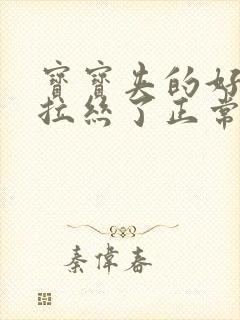 寶寶失的好
拉絲了正常
秦偉春